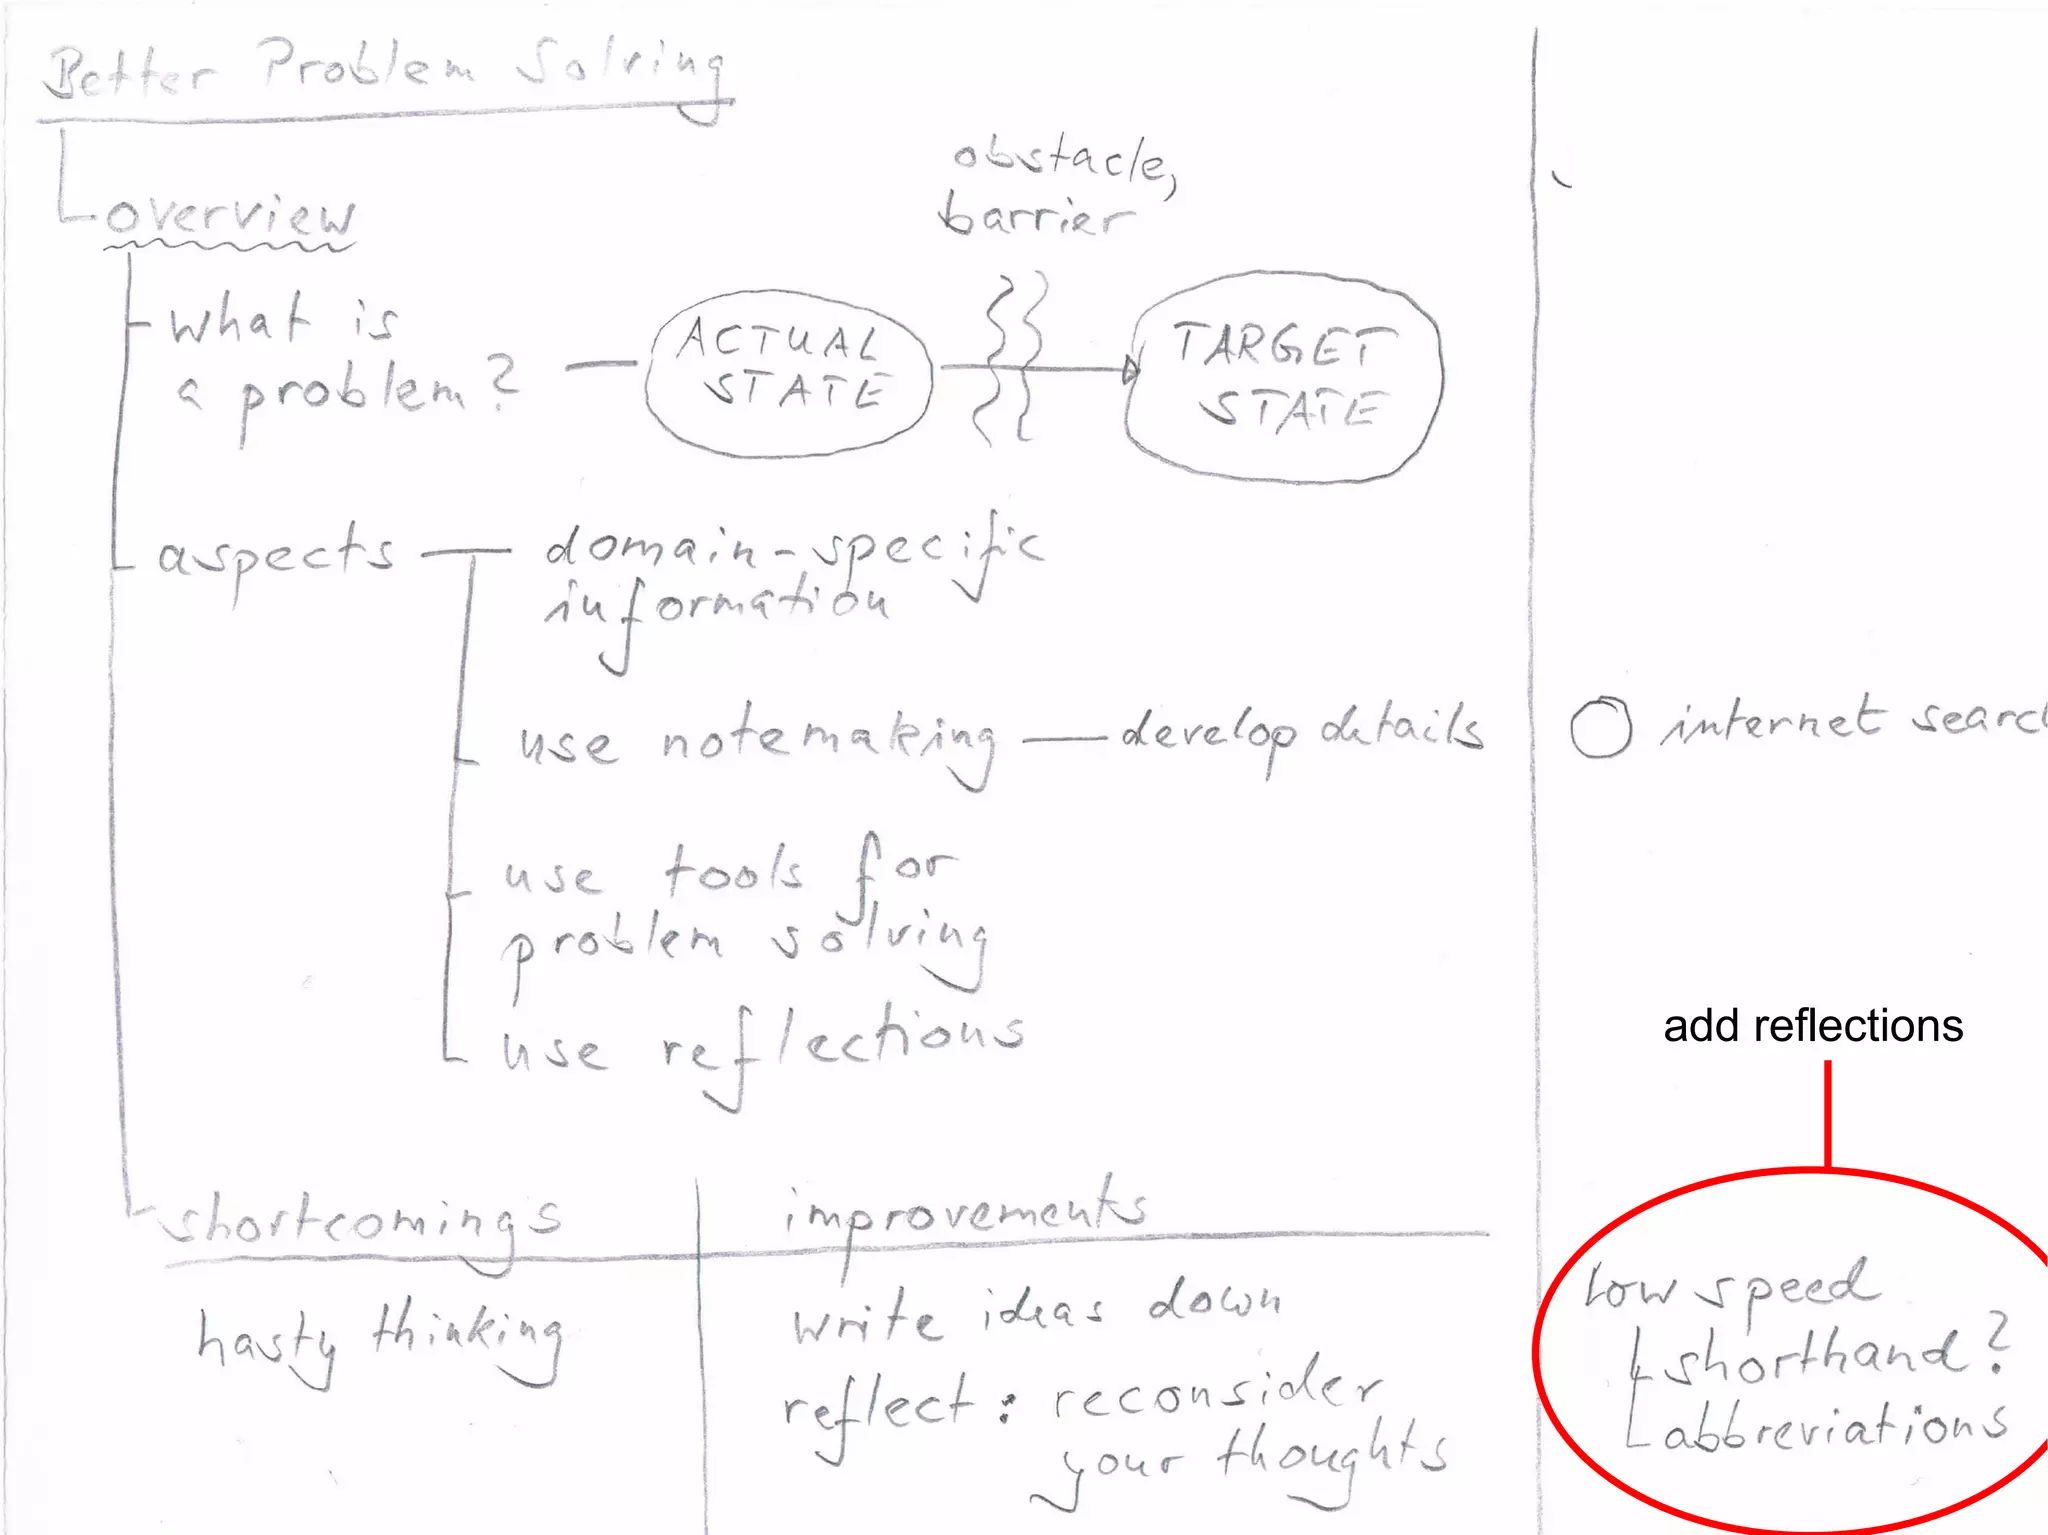 Better Problem Solving
overview
what is
a problem?
obstacle,
barrier
ACTUAL
STATE
TARGET
STATE
aspects
domain-specific
information
use notemaking
develop details
internet search
use tools for
problem solving
use reflections
add reflections
shortcomings
improvements
hasty thinking
write ideas down
reflect: reconsider
your thoughts
low speed
shorthand?
abbreviations